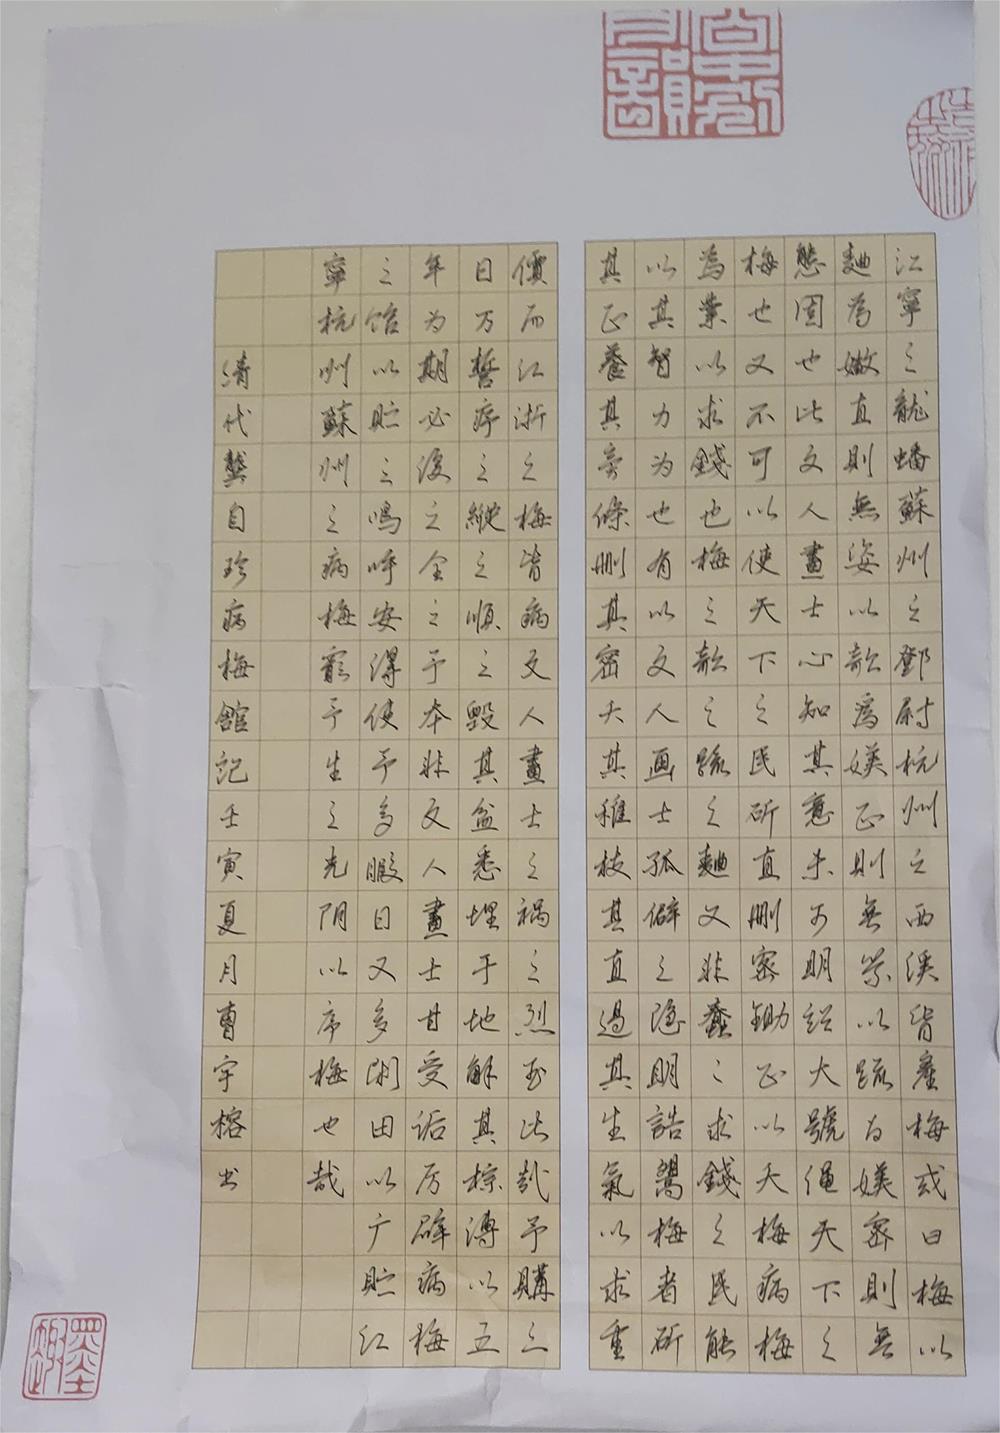 江寧之龍蟠蘇州之鄧尉杭州之西溪皆產梅或曰梅以
麯為媺直則無姿以欹為媄正則無景以疏为媄密則無
態固也此文人畫士心知其意未可明詔大號繩天下之
梅也又不可以使天下之民斫直刪密鋤正以夭梅病梅
為業以求錢也梅之欹之疏之麯又非蠢〻求錢之民能
以其智力为也有以文人画士孤僻之隐明誥鬻梅者斫
其正養其旁條刪其密夭其稚枝其直遏其生氣以求重
價而江浙之梅皆病文人畫士之禍之烈至此哉予購三
日万誓疗之縱之順之毀其盆悉埋于地解其棕縛以五
年为期必複之全之予本非文人畫士甘受诟厉辟病梅
之馆以貯之嗚呼安得使予多暇日又多閒田以广貯江
寧杭州蘇州之病梅窮予生之光阴以疗梅也哉
清代龔自珍病梅館記壬寅夏月曹宇榕书
墨趣